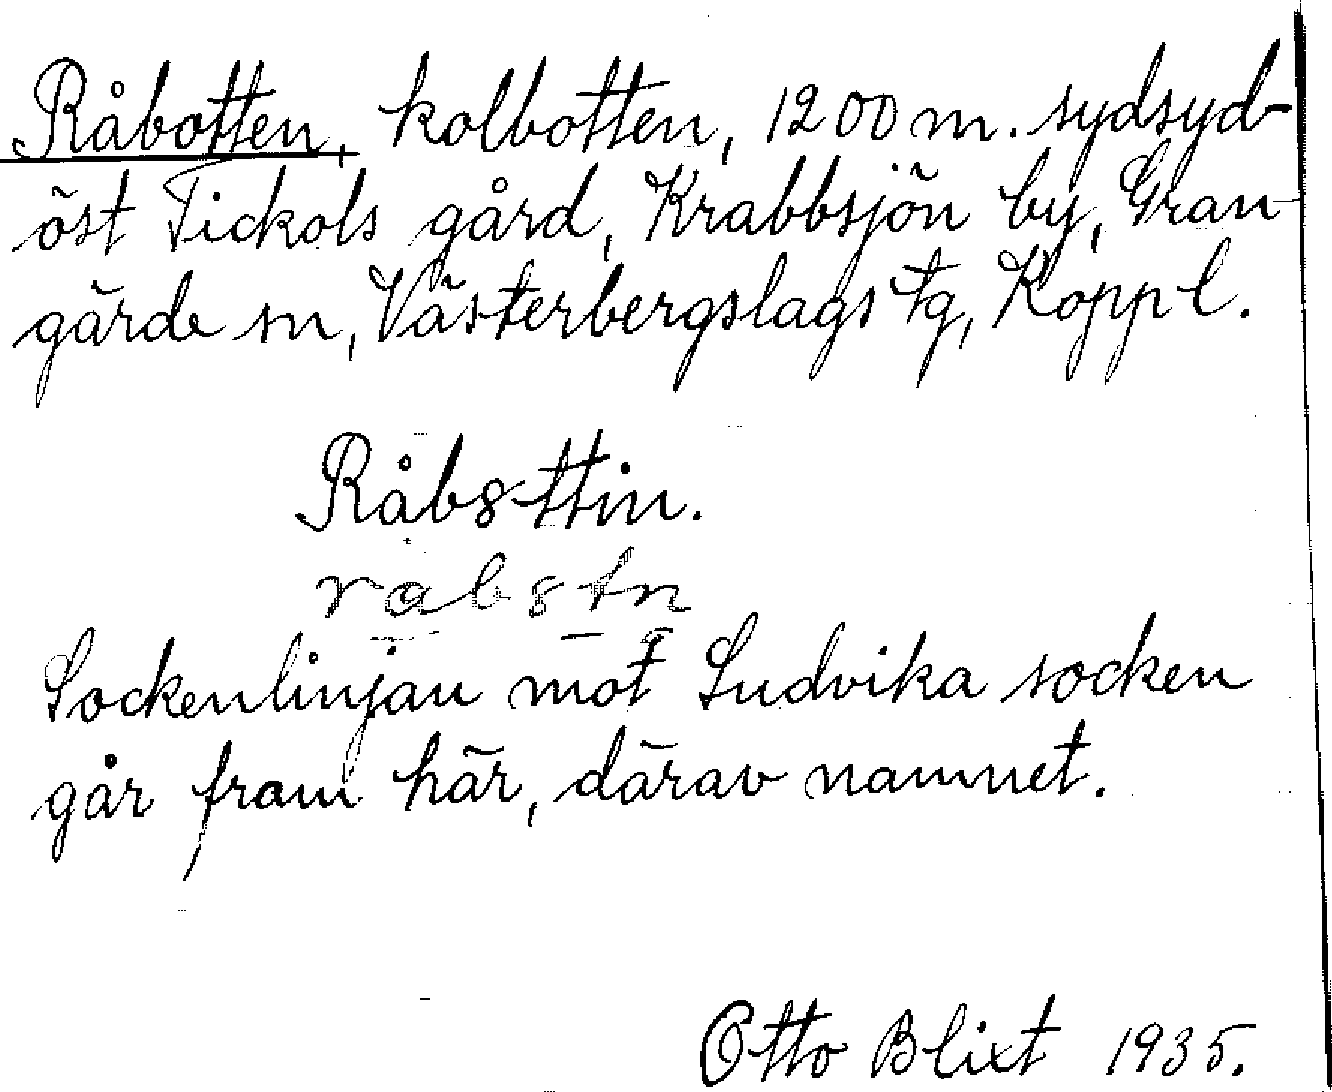 Råbotten, kolbotten, 1200 m. sydsyd-
öst Tickols gård, Krabbsjön by, Gran-
gärde sn, Västerbergslags tg, Kopp l.
Råb8ttin.
råb8tn
Sockenlinjan mot Ludvika socken
går fram här, därav namnet.
Otto Blixt 1935.